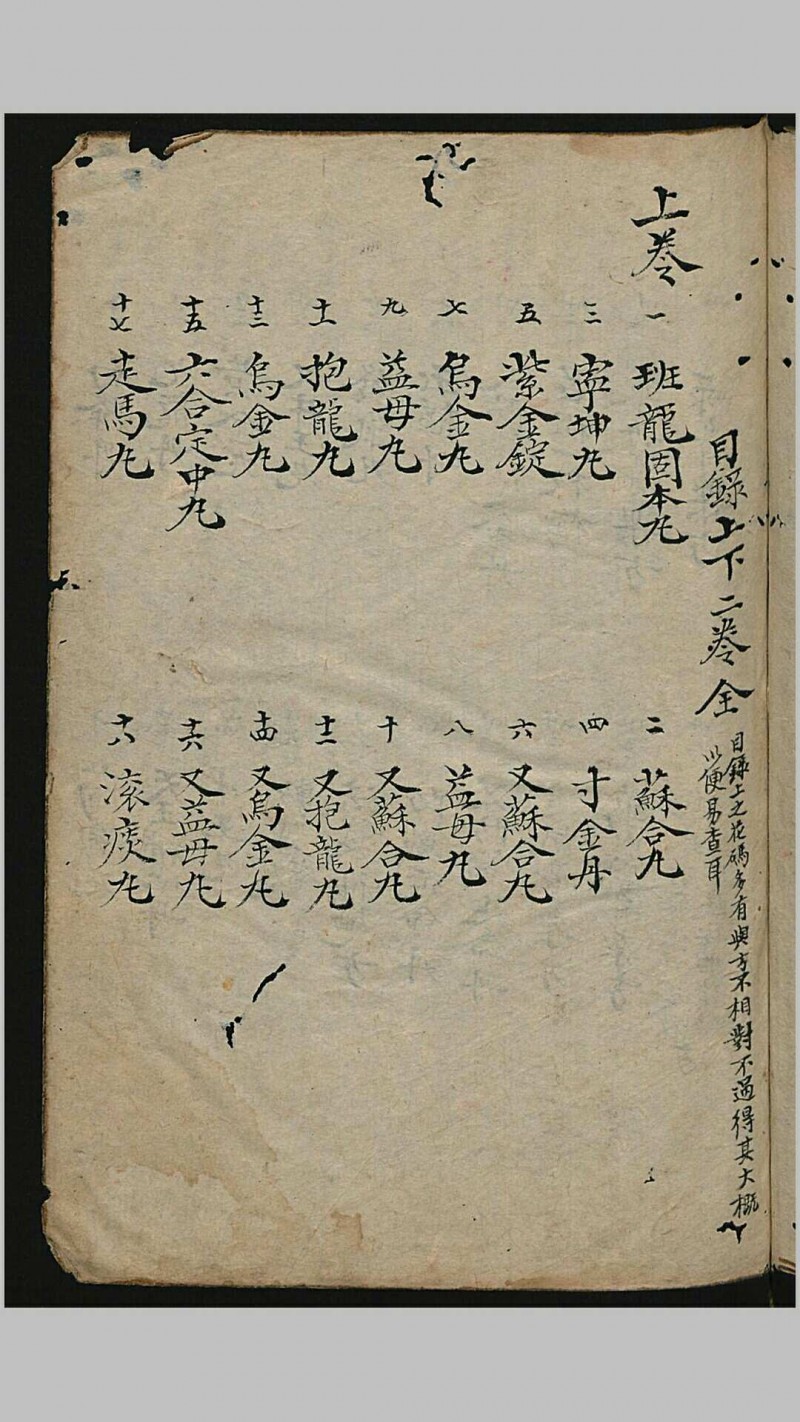 目錄上下二卷全
目錄上之花碼多有與方不相對不過得其大概
以便易查耳
上卷
一 班龍固本丸
二 蘇合丸
三 寧坤丸
四 寸金丹
五 紫金錠
六 又蘇合丸
七 烏金丸
八 益母丸
九 益母丸
十 又蘇合丸
十一 抱龍丸
十二 又抱龍丸
十三 烏金丸
十四 又烏金丸
十五 六合定中丸
十六 又益母丸
十七 走馬丸
十八 滚痰丸